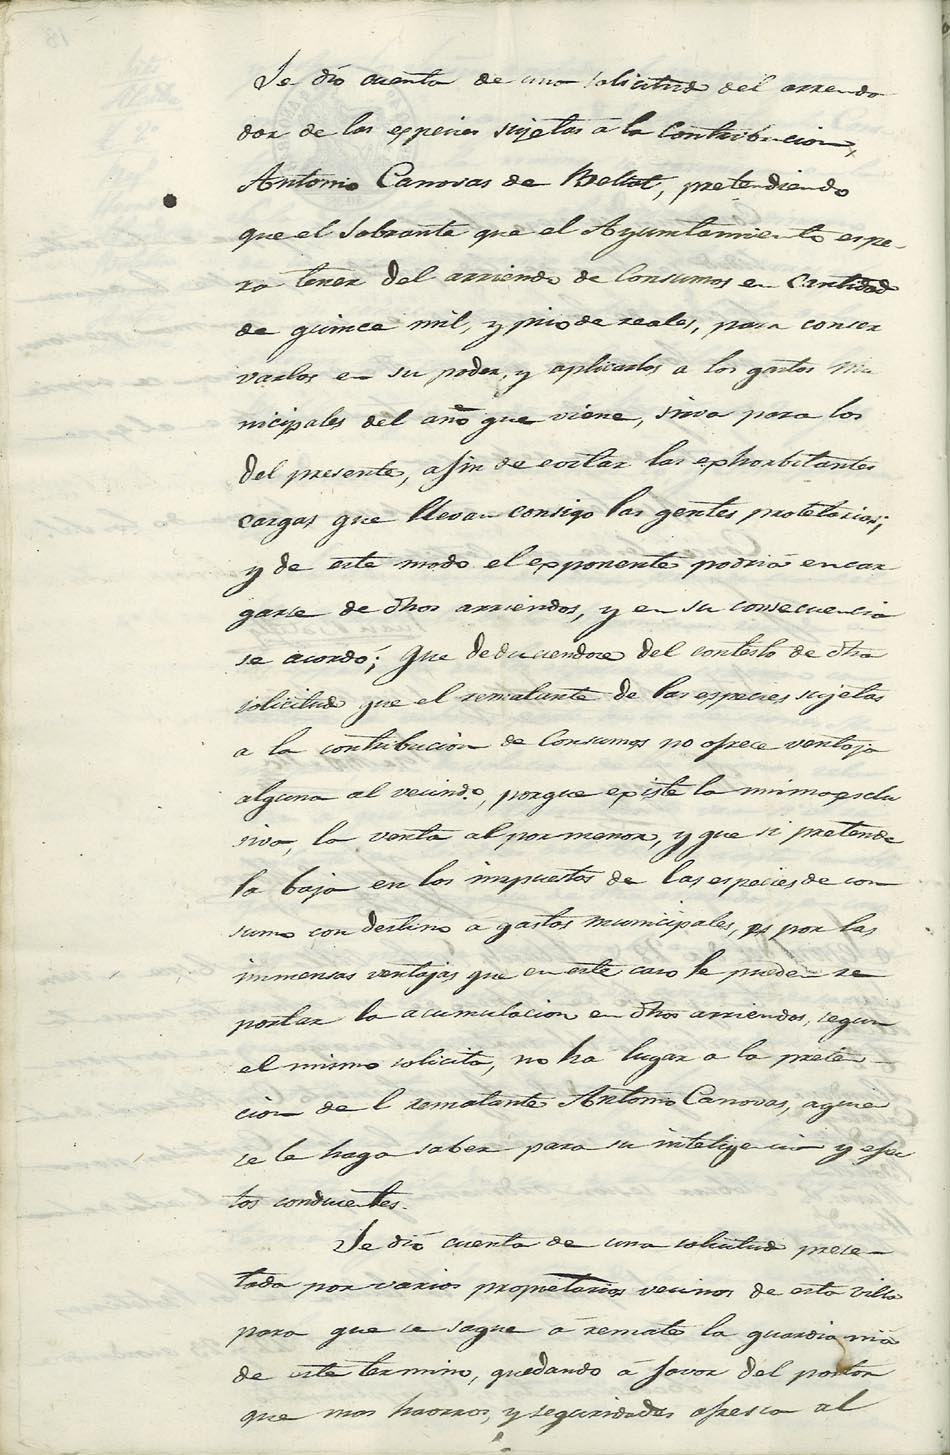 Se dio cuenta de una solicitud del arrenda
dor de las especies sujetas á la Contribucion,
Antonio Canovas de Bellot, pretendiendo
que el sobrante que el Ayuntamiento espe-
ra tener del arriendo de Consumos en Cantidad
de quince mil, y pico de reales, para conser
varlos en su poder, y aplicarlos a los gastos mu
nicipales del año que viene, sirva para los
del presente, a fin de evitar las exhorbitantes
cargas que llevan consigo las gentes proletarias;
y de este modo el exponente podria encar
garse de dhos arriendos, y en su consecuencia
se acordó; Que deduciendose del contesto de dha
solicitud que el rematante de las especies sujetas
a la contribucion de Consumos no ofrece ventaja
alguna al vecind.o, porque existe la misma esclu
siva, la venta al por menor, y que si pretende
la baja en los impuestos de las especies de con
sumo con destino á gastos municipales, es por las
immensas ventajas que en este caso le pueden re
portar la acumulacion en dhos arriendos, segun
el mismo solicita, no ha lugar a la preten-
cion del rematante Antonio Canovas, a quien
se le haga saber para su inteligencia y efec
tos conducentes.
Se dió cuenta de una solicitud presen-
tada por varios propietarios vecinos de esta villa
para que se saque á remate la guardia
de este termino, quedando á favor del postor
que mas haorros, y seguridades ofresca al